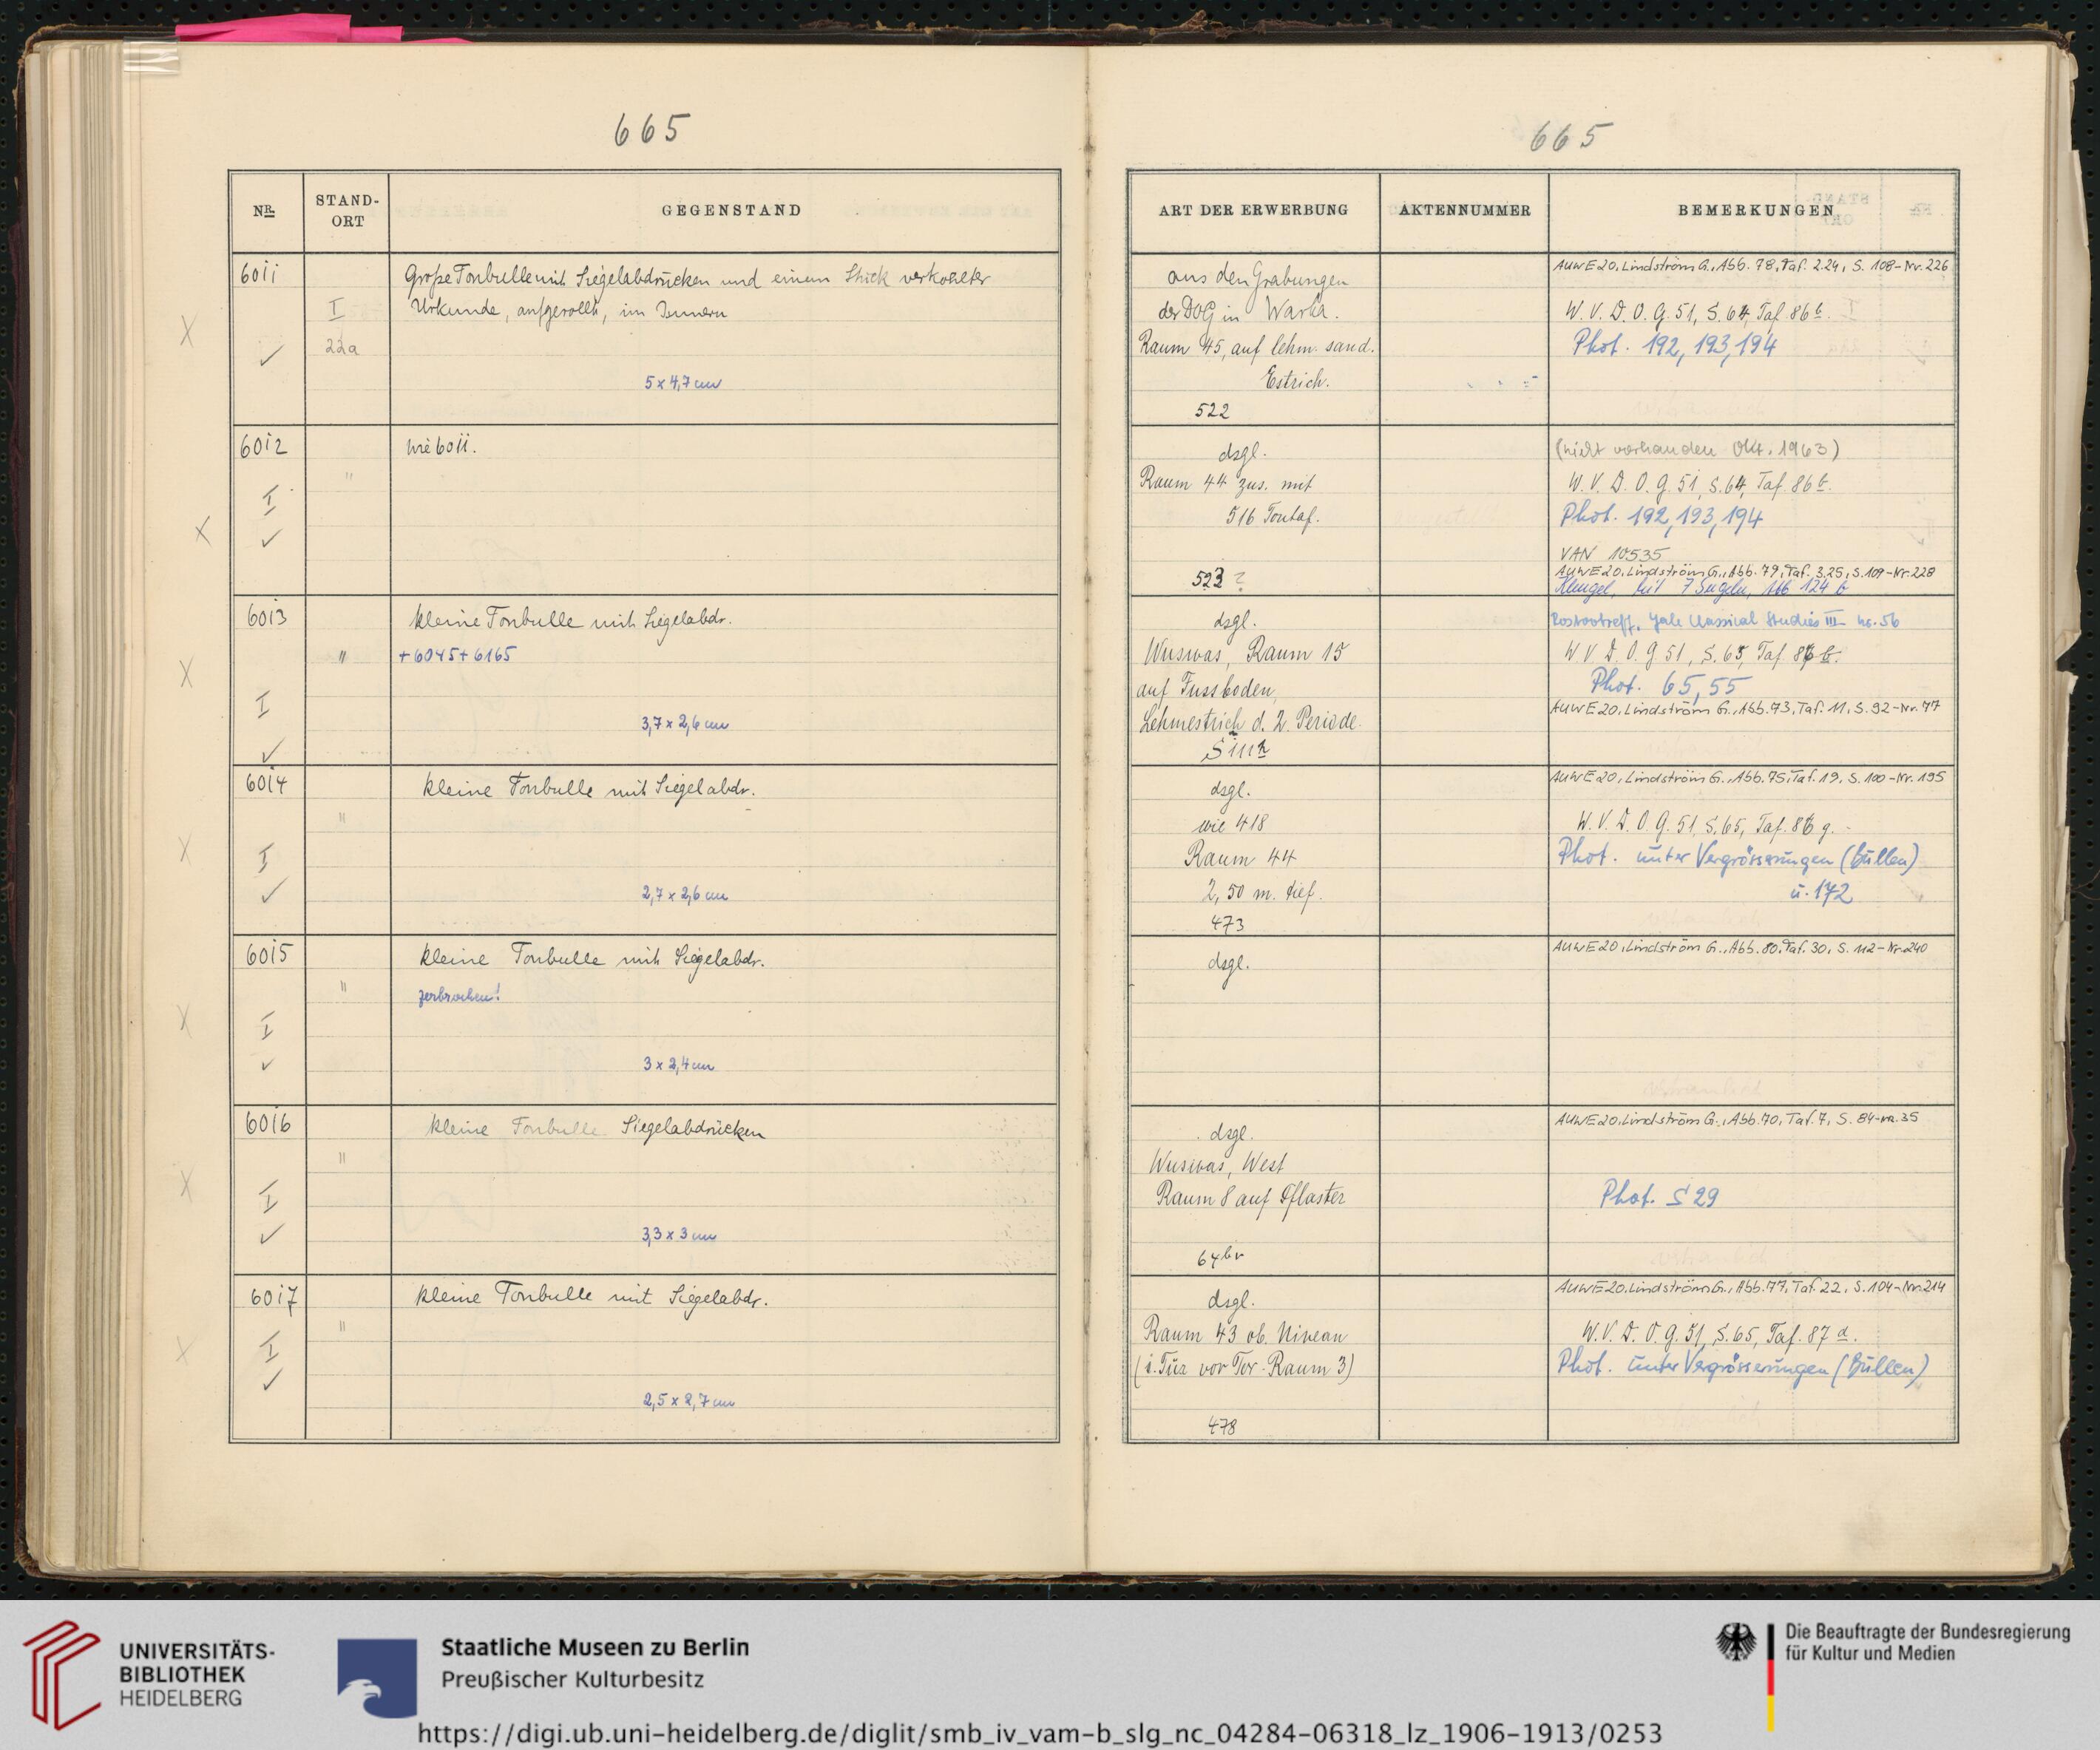 665
NR.
STAND-
ORT
GEGENSTAND
6011
Große Tonbulle mit Siegelabdrücken und einem Stück verkohlter
I
Urkunde, aufgerollt, im Innern
X
22a
✓
5 x 4,7 cm
6012
wie 6011.
"
I
X
✓
6013
kleine Tonbulle mit Siegelabdr.
"
+ 6045 + 6165
X
I
3,7 x 2,6 cm
✓
6014
kleine Tonbulle mit Siegelabdr.
"
X
I
✓
2,7 x 2,6 cm
6015
kleine Tonbulle mit Siegelabdr.
"
zerbrochen!
X
I
✓
3 x 2,4 cm
6016
kleine Tonbulle Siegelabdrücken
"
X
I
✓
3,3 x 3 cm
6017
kleine Tonbulle mit Siegelabdr.
"
X
I
✓
2,5 x 2,7 cm
665
ART DER ERWERBUNG
AKTENNUMMER
BEMERKUNGEN
aus den Grabungen
der DOG in Warka.
Raum 45, auf lehm. sand.
Estrich.
522
AUWE 20, Lindström G., Abb. 78, Taf. 2.24, S. 108-Nr. 226
W. V. D. O. G. 51, S. 64, Taf. 86 b.
Phot. 192, 193, 194
dsgl.
Raum 44 zus. mit
516 Tontaf.
523 ?
(nicht vorhanden Okt. 1963)
W. V. D. O. G. 51, S. 64, Taf. 86 b.
Phot. 192, 193, 194
VAN 10535
AUWE 20, Lindström G., Abb. 79, Taf. 3.25, S. 109-Nr. 228
Klengel, mit 7 Siegeln, Abb 124 b
dsgl.
Wuswas, Raum 15
auf Fussboden,
Lehmestrich d. 2. Periode
Rostovtzeff, Yale Classical Studies III no. 56
W. V. D. O. G. 51, S. 65, Taf. 86 b.
Phot. 65, 55
AUWE 20, Lindström G., Abb. 73, Taf. 11, S. 92-Nr. 77
dsgl.
wie 418
Raum 44
2,50 m. tief.
473
AUWE 20, Lindström G., Abb. 75, Taf. 19, S. 100-Nr. 195
W. V. D. O. G. 51, S. 65, Taf. 86 g.
Phot. unter Vergrösserungen (Bullen)
u. 172
dsgl.
AUWE 20, Lindström G., Abb. 80, Taf. 30, S. 112-Nr. 240
dsgl.
Wuswas, West
Raum 8 auf Pflaster
64 br
AUWE 20, Lindström G., Abb. 70, Taf. 7, S. 84-Nr. 35
Phot. S 29
dsgl.
Raum 43 ob. Niveau
(i. Tür vor Tor-Raum 3)
478
AUWE 20, Lindström G., Abb. 77, Taf. 22, S. 104-Nr. 214
W. V. D. O. G. 51, S. 65, Taf. 87 d.
Phot. unter Vergrösserungen (Bullen)
UNIVERSITÄTS-
BIBLIOTHEK
HEIDELBERG
Staatliche Museen zu Berlin
Preußischer Kulturbesitz
Die Beauftragte der Bundesregierung
für Kultur und Medien
https://digi.ub.uni-heidelberg.de/diglit/smb_iv_vam-b_slg_nc_04284-06318_lz_1906-1913/0253